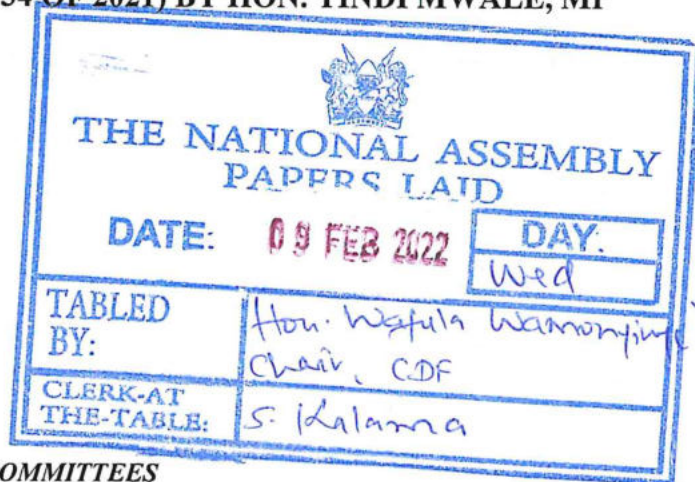 34 OF 2021) BY HON. TINDI MWALE, MP
THE NATIONAL ASSEMBLY
PAPERS LAID
DATE: 09 FEB 2022 DAY:
Wed
TABLED BY: Hon. Wafula Wamunyinyi
Chair, CDF
CLERK-AT THE-TABLE: S. Kalama
OMMITTEES